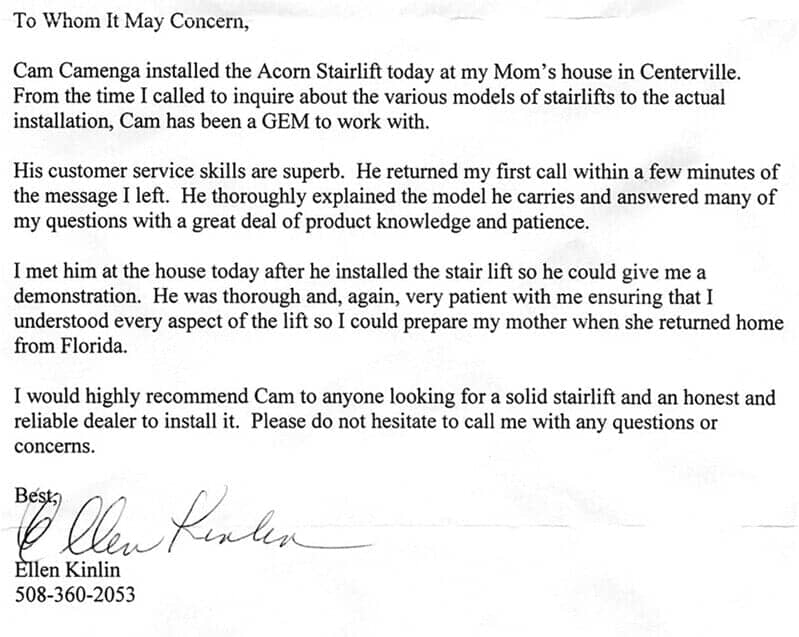 To Whom It May Concern,
Cam Camenga installed the Acorn Stairlift today at my Mom's house in Centerville.
From the time I called to inquire about the various models of stairlifts to the actual
installation, Cam has been a GEM to work with.
His customer service skills are superb.  He returned my first call within a few minutes of
the message I left.  He thoroughly explained the model he carries and answered many of
my questions with a great deal of product knowledge and patience.
I met him at the house today after he installed the stair lift so he could give me a
demonstration.  He was thorough and, again, very patient with me ensuring that I
understood every aspect of the lift so I could prepare my mother when she returned home
from Florida.
I would highly recommend Cam to anyone looking for a solid stairlift and an honest and
reliable dealer to install it.  Please do not hesitate to call me with any questions or
concerns.
Best,
Ellen Kinlin
Ellen Kinlin
508-360-2053